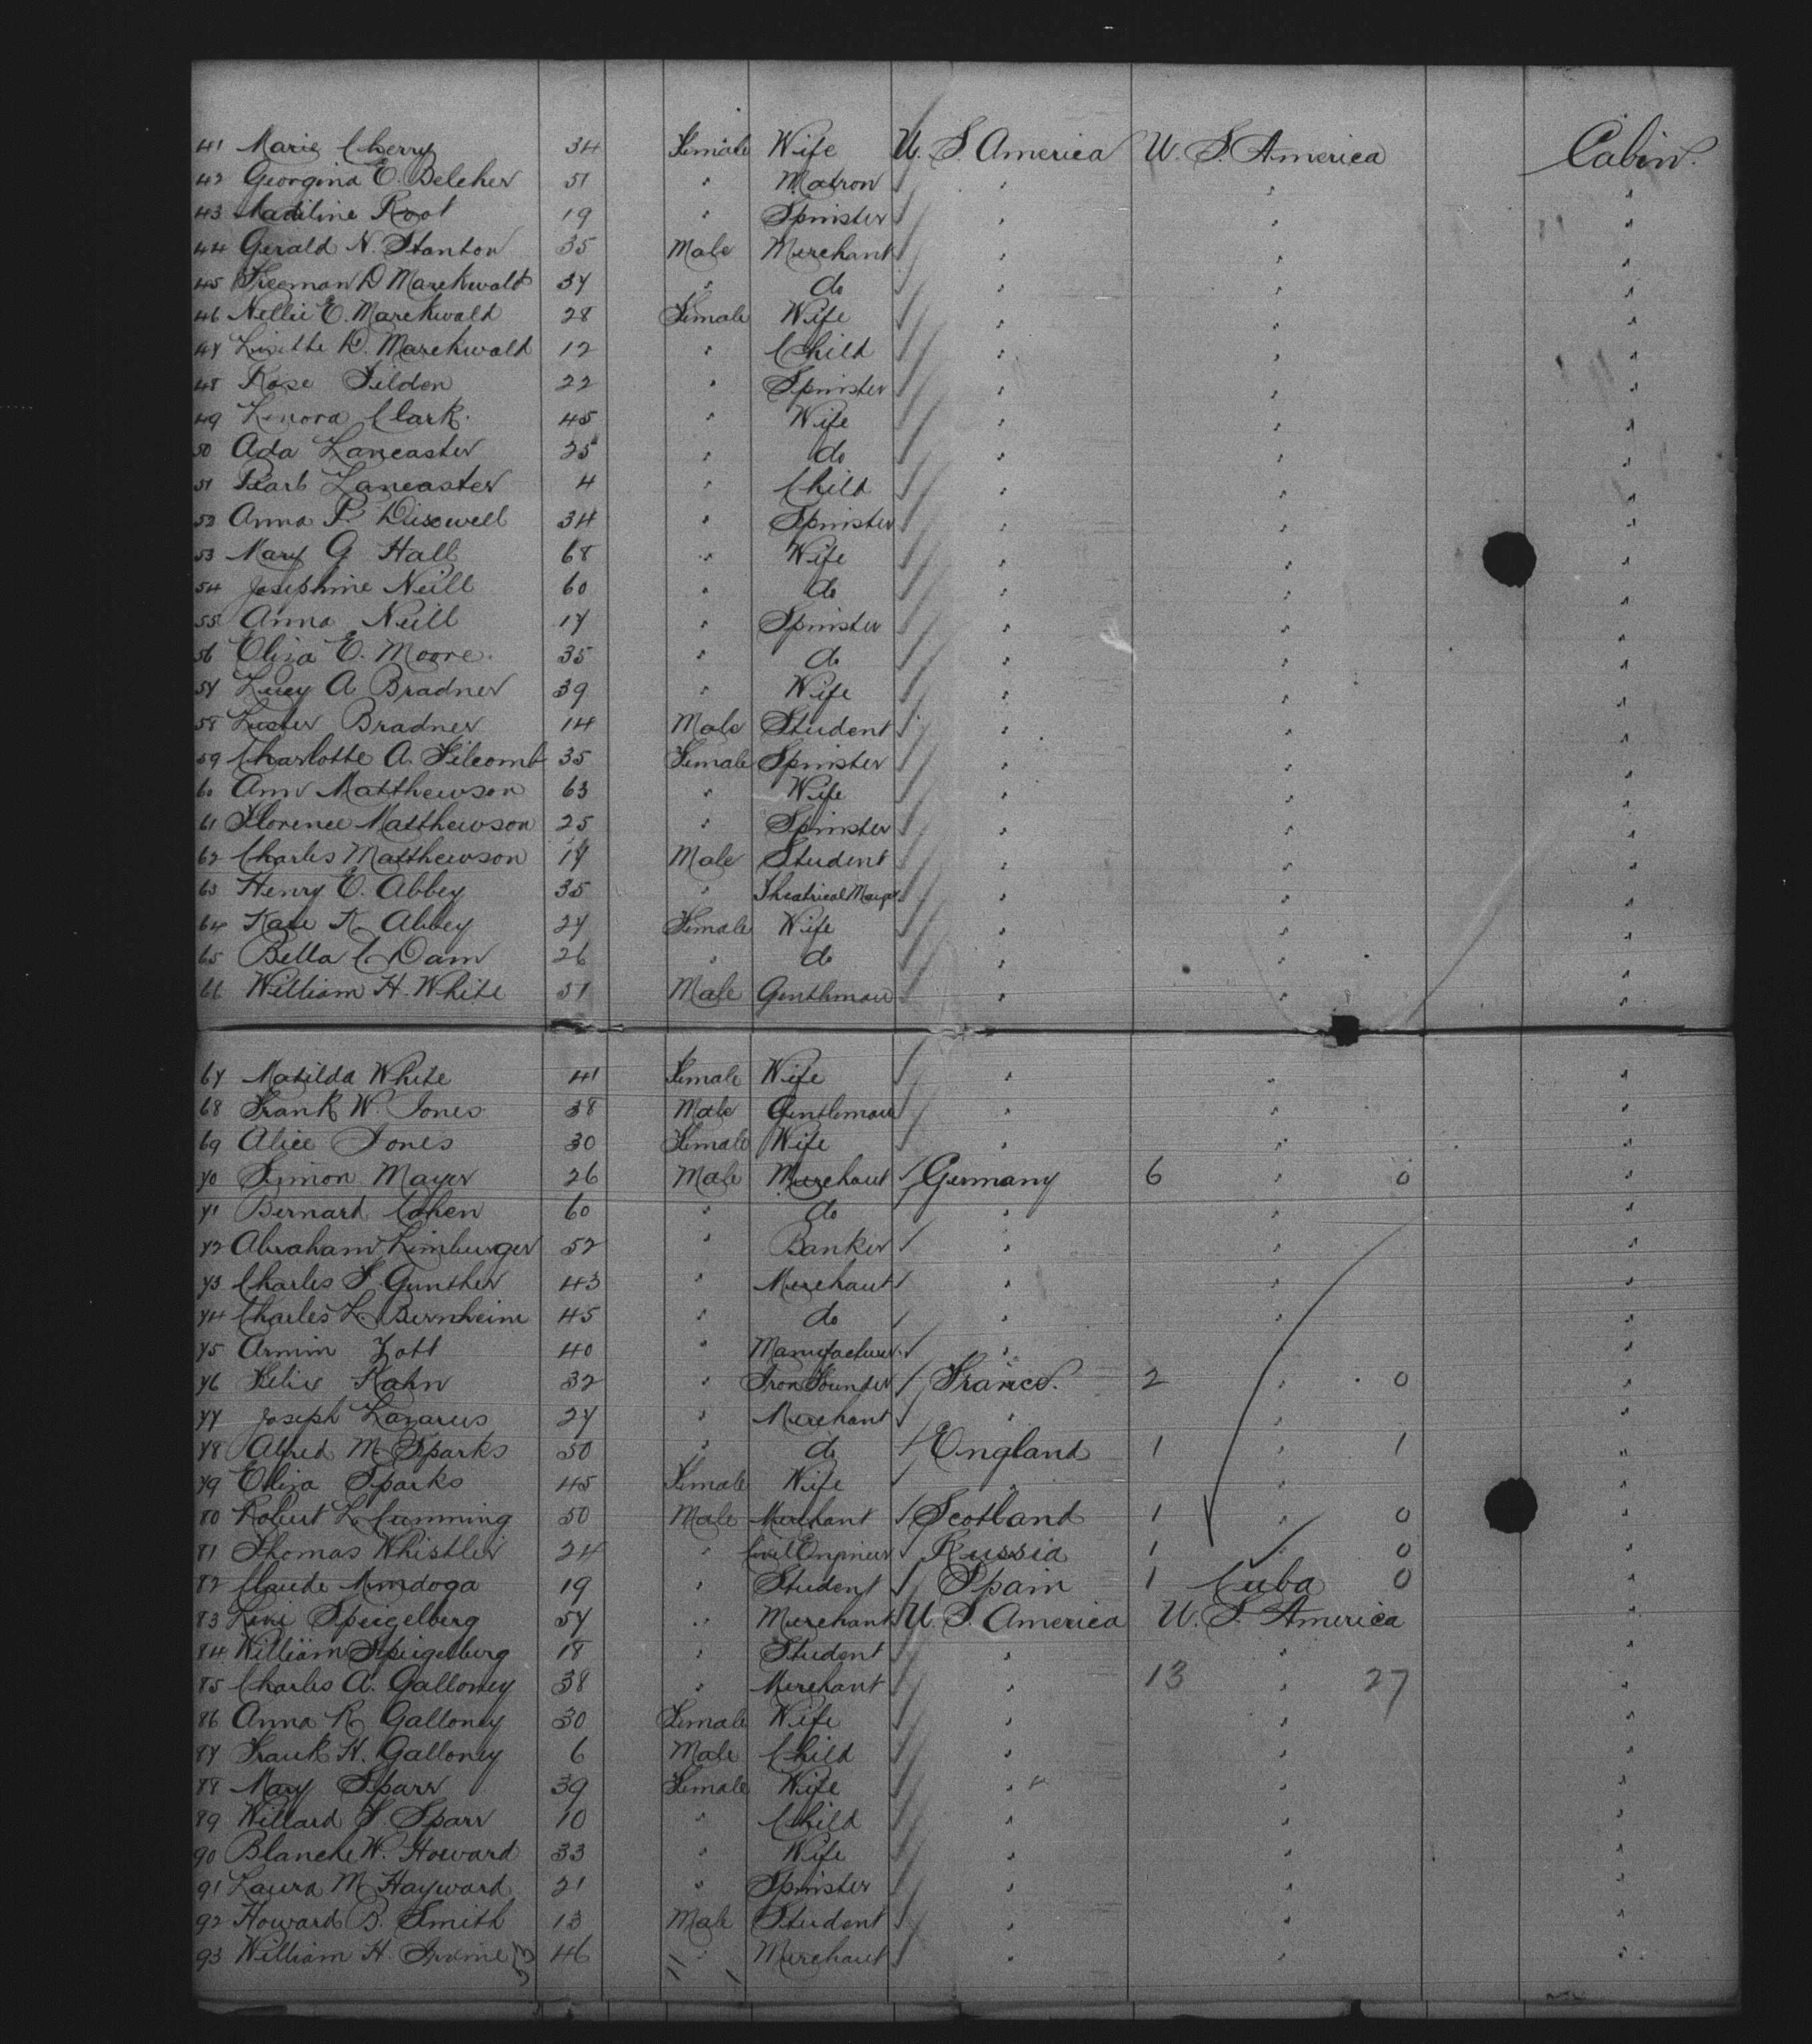 41 Marie Cherry 34 Female Wife U. S. America U. S. America Cabin.
42 Georgina E. Belcher 51 " Matron " " "
43 Madeline Root 19 " Spinster " " "
44 Gerald N. Stanton 35 Male Merchant " " "
45 Freeman D Marckwald 37 " do " " "
46 Nellie E. Marckwald 28 Female Wife " " "
47 Lisette D. Marckwald 12 " Child " " "
48 Rose 22 " Spinster " " "
49 Lenora Clark. 45 " Wife " " "
50 Ada Lancaster 25 " do " " "
51 Pearl Lancaster 4 " Child " " "
52 Anna P. 34 " Spinster " " "
53 Mary G Hall 68 " Wife " " "
54 Josephine Neill 60 " do " " "
55 Anna Neill 17 " Spinster " " "
56 Eliza E. Moore. 35 " do " " "
57 Lucy A Bradner 39 " Wife " " "
58 Lester Bradner 14 Male Student " " "
59 Charlotte A. 35 Female Spinster " " "
60 Ann Matthewson 63 " Wife " " "
61 Florence Matthewson 25 " Spinster " " "
62 Charles Matthewson 17 Male Student " " "
63 Henry E. Abbey 35 " Theatrical " " "
64 Kate K. Abbey 27 Female Wife " " "
65 Bella C Dam 26 " do " " "
66 William H. White 51 Male Gentleman " " "
67 Matilda White 41 Female Wife " " "
68 Frank W. Jones 38 Male Gentleman " " "
69 Alice Jones 30 Female Wife " " "
70 Simon Mayer 26 Male Merchant Germany 6 " 0 "
71 Bernard Cohen 60 " do " " "
72 Abraham Limburger 52 " Banker " " "
73 Charles F. Gunther 43 " Merchant " " "
74 Charles L. Bernheim 45 " do " " "
75 Armin 40 " Manufacturer " " "
76 Felix Kahn 32 " Iron Founder France. 2 " 0 "
77 Joseph Lazarus 27 " Merchant " " "
78 Alfred M Sparks 50 " do England 1 " 1 "
79 Eliza Sparks 45 Female Wife " " "
80 Robert L. Cumming 50 Male Merchant Scotland 1 " 0 "
81 Thomas Whistler 24 " Civil Engineer Russia 1 0 "
82 Claude 19 " Student Spain 1 Cuba 0 "
83 Levi Speigelberg 57 " Merchant U. S. America U. S. America "
84 William Speigelberg 18 " Student " " "
85 Charles A. Galloney 38 " Merchant " 13 " 27 "
86 Anna R Galloney 30 Female Wife " " "
87 Frank H. Galloney 6 Male Child " " "
88 Mary Sparr 39 Female Wife " " "
89 Willard F. Sparr 10 " Child " " "
90 Blanche W. Howard 33 " Wife " " "
91 Laura M Hayward 21 " Spinster " " "
92 Howard B. Smith 13 Male Student " " "
93 William H. Irvine 46 " Merchant " " "